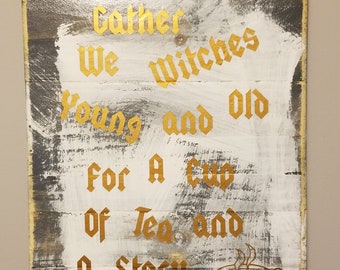 Gather
We Witches
Young and Old
For A Cup
Of Tea and
A Story